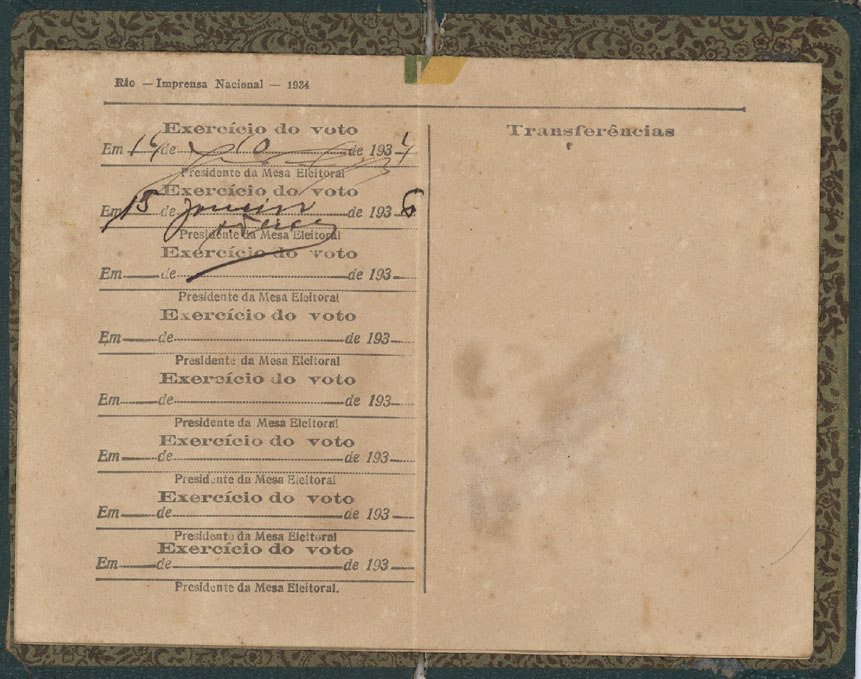 Rio — Imprensa Nacional — 1934
Exercício do voto
Em 14 de 10 de 1934
Presidente da Mesa Eleitoral
Exercício do voto
Em 15 de de 1936
Presidente da Mesa Eleitoral
Exercício do voto
Em de de 193
Presidente da Mesa Eleitoral
Exercício do voto
Em de de 193
Presidente da Mesa Eleitoral
Exercício do voto
Em de de 193
Presidente da Mesa Eleitoral
Exercício do voto
Em de de 193
Presidente da Mesa Eleitoral
Exercício do voto
Em de de 193
Presidente da Mesa Eleitoral
Exercício do voto
Em de de 193
Presidente da Mesa Eleitoral.
Transferências